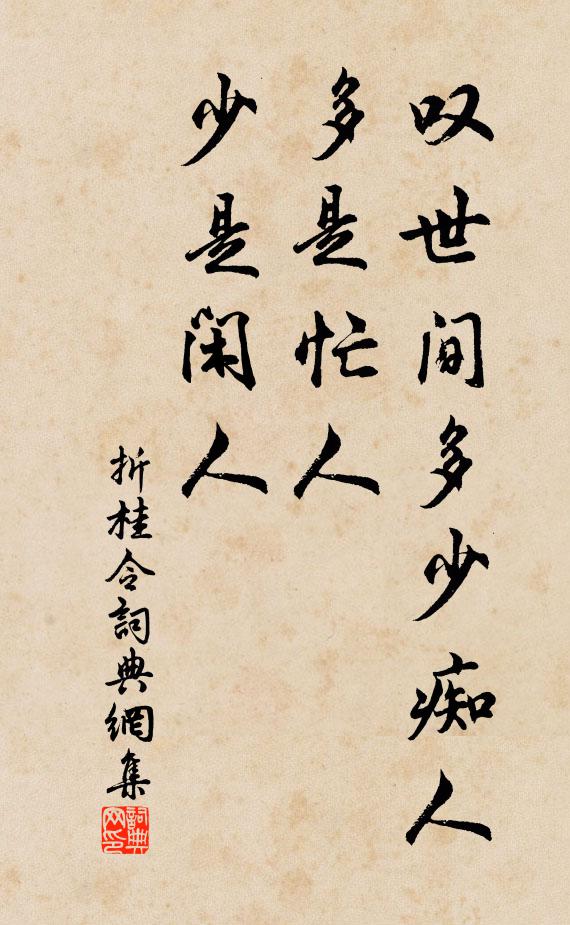 叹世间多少痴人
多是忙人
少是闲人
折桂令詞典網集
詞典网印